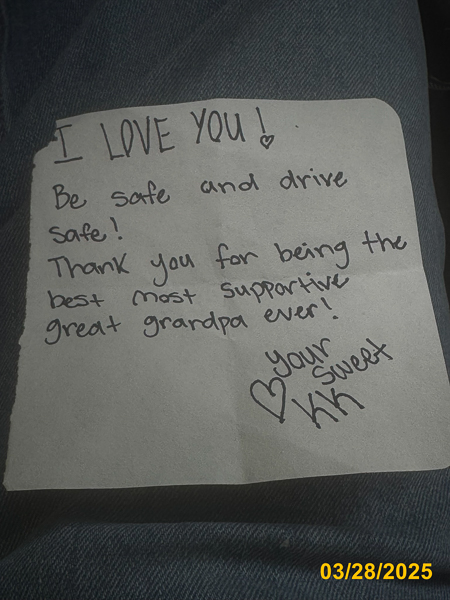 I LOVE YOU!
Be safe and drive
safe!
Thank you for being the
best most supportive
great grandpa ever!
your
sweet
♡ KK
03/28/2025